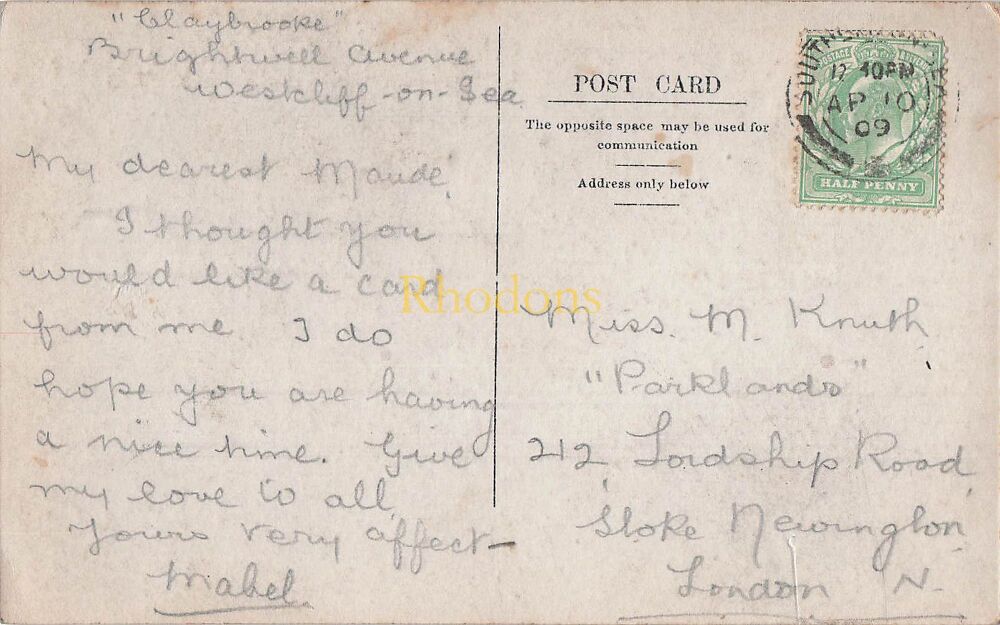 "Claybrooke"
Brightwell Avenue
Westcliff-on-Sea
My dearest Maude,
I thought you
would like a card
from me I do
hope you are having
a nice time. Give
my love to all,
Yours very affect—
Mabel.
POST CARD
The opposite space may be used for
communication
Address only below
12 40PM
AP 10
09
POSTAGE
HALF PENNY
Rhodons
Miss. M. Knuth
"Parklands"
212 Lordship Road
Stoke Newington
London N.